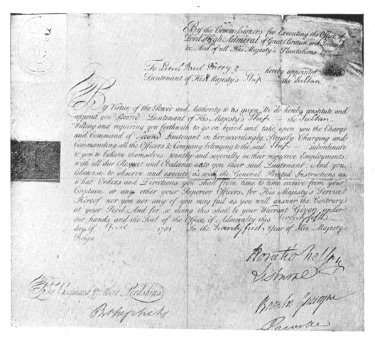 By the Commissioners for Executing the Office of
Lord High Admiral of Great Britain and Ireland
&c. And of all His Majesty's Plantations
To Lieut. hereby appointed
Lieutenant of His Majesty's Ship the Sultan
By Virtue of the Power and Authority to us given, We do hereby constitute and
appoint you Second Lieutenant of His Majesty's Ship the Sultan
Willing and requiring you forthwith to go on board and take upon you the Charge
and Command of Second Lieutenant in her accordingly. Strictly Charging and
Commanding all the Officers & Company belonging to the said Ship subordinate
to you to behave themselves jointly and severally in their respective Employments
with all due Respect and Obedience unto you their said Lieutenant. And you
likewise to observe and execute as well the General Printed Instructions as
what Orders and Directions you shall from time to time receive from your
Captain, or any other your Superior Officers, for His Majesty's Service
Hereof nor you nor any of you may fail as you will answer the Contrary
at your Peril. And for so doing this shall be your Warrant Given under
our hands, and the Seal of the Office of Admiralty this
day of 1781 In the Twenty first Year of His Majesty's
Reign
Lisburne
By Command of their Lordships